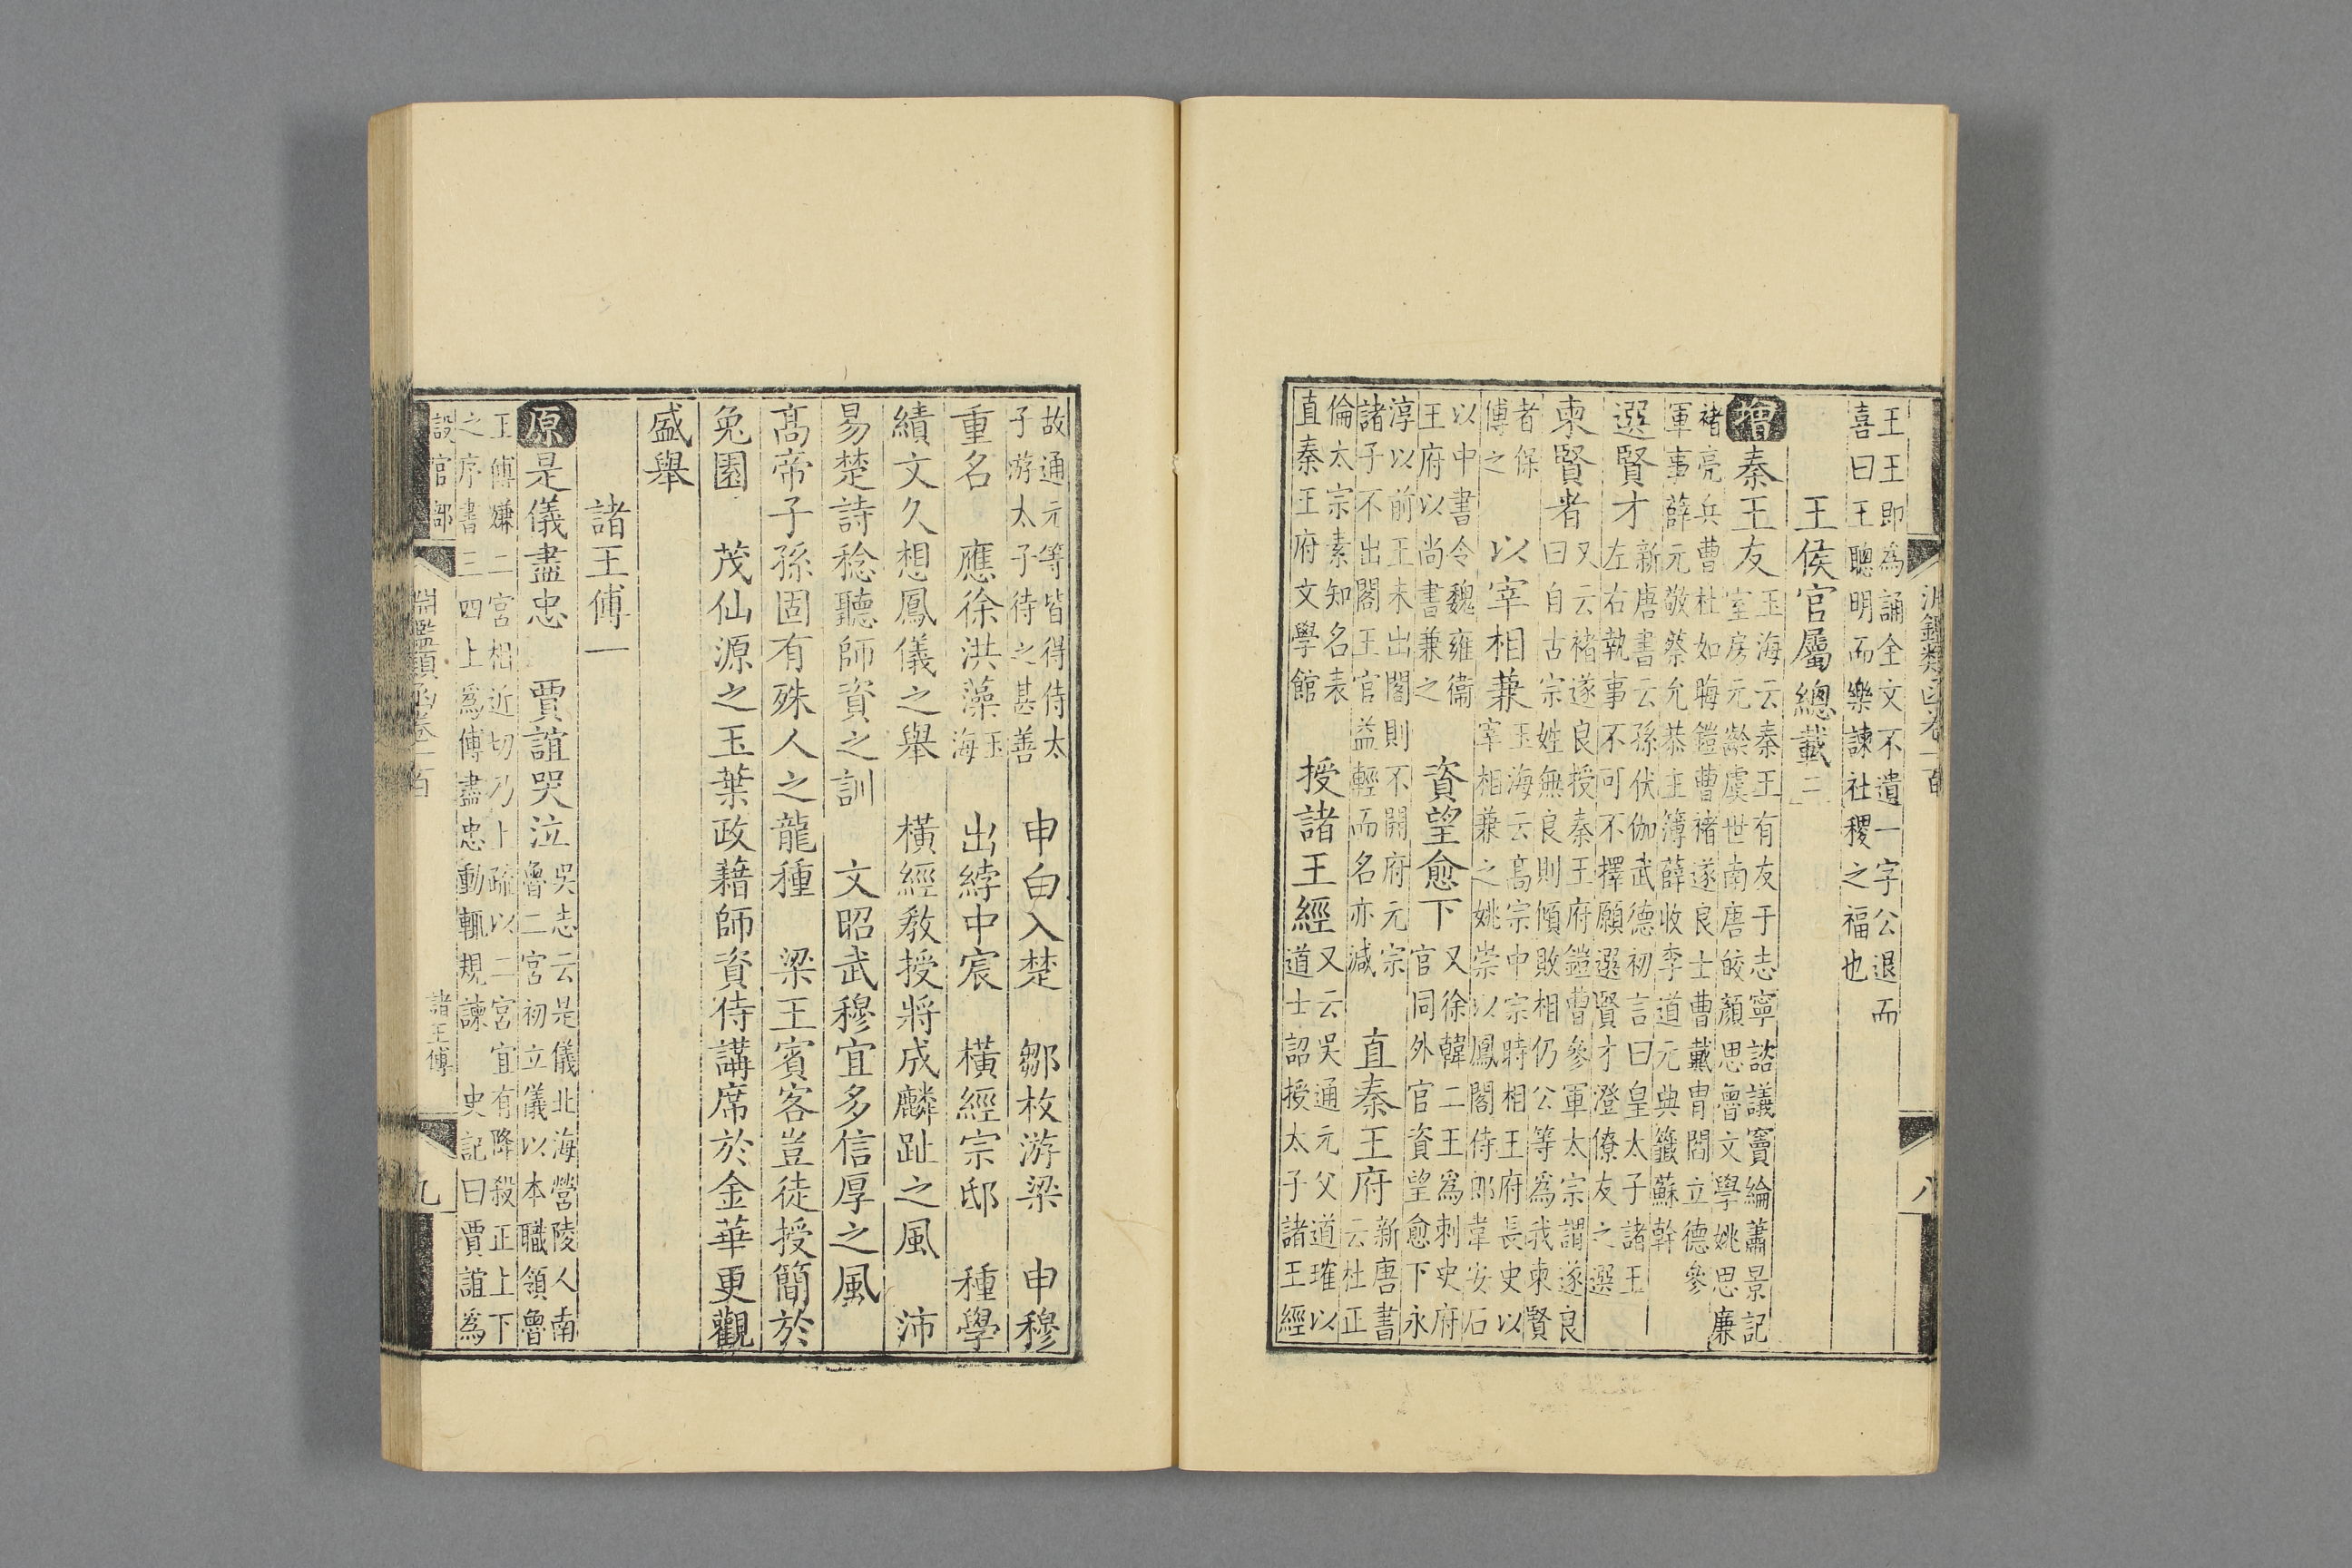 淵鑑類函卷一百
八
王王即為誦全文不遺一字公退而
喜曰王聰明而樂諫社稷之福也
王侯官屬總載二
增秦王友玉海云秦王有友于志寧諮議竇綸蕭景記
室房元齡虞世南唐皎顏思魯文學姚思廉
褚亮兵曹杜如晦鎧曹褚遂良士曹戴冑閻立德參
軍事薛元敬蔡允恭主簿薛收李道元典籤蘇幹
選賢才新唐書云孫伏伽武德初言曰皇太子諸王
左右執事不可不擇願選賢才澄僚友之選
柬賢者又云褚遂良授秦王府鎧曹參軍太宗謂遂良
曰自古宗姓無良則傾敗相仍公等為我柬賢
者保
傅之
以宰相兼玉海云高宗中宗時相王府長史以
宰相兼之姚崇以鳳閣侍郎韋安石
以中書令魏雍衞
王府以尚書兼之
資望愈下又徐韓二王為刺史府
官同外官資望愈下永
淳以前王未出閤則不開府元宗
諸子不出閤王官益輕而名亦減
直秦王府新唐書
云杜正
倫太宗素知名表
直秦王府文學館
授諸王經又云吳通元父道瓘以
道士詔授太子諸王經
故通元等皆得侍太
子游太子待之甚善
申白入楚 鄒枚游梁 申穆
重名 應徐洪藻玉
海
出綍中宸 橫經宗邸 種學
績文久想鳳儀之舉 橫經敎授將成麟趾之風 沛
易楚詩稔聽師資之訓 文昭武穆宜多信厚之風
高帝子孫固有殊人之龍種 梁王賓客豈徒授簡於
兔園 茂仙源之玉葉政藉師資侍講席於金華更觀
盛舉
諸王傅一
原是儀盡忠 賈誼哭泣吳志云是儀北海營陵人南
魯二宮初立儀以本職領魯
王傅嫌二宮相近切乃上疏以二宮宜有降殺正上下
之序書三四上為傅盡忠動輒規諫 史記曰賈誼為
設官部
淵鑑類函卷一百
諸王傅
九